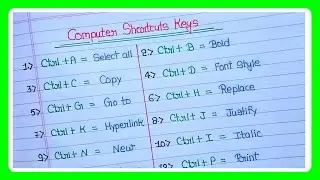 Computer Shortcuts Keys
1> Ctrl+A = Select all
2> Ctrl+B = Bold
3> Ctrl+C = Copy
4> Ctrl+D = Font Style
5> Ctrl+G = Go to
6> Ctrl+H = Replace
7> Ctrl+K = Hyperlink
8> Ctrl+J = Justify
9> Ctrl+N = New
10> Ctrl+I = Italic
Ctrl+P = Print